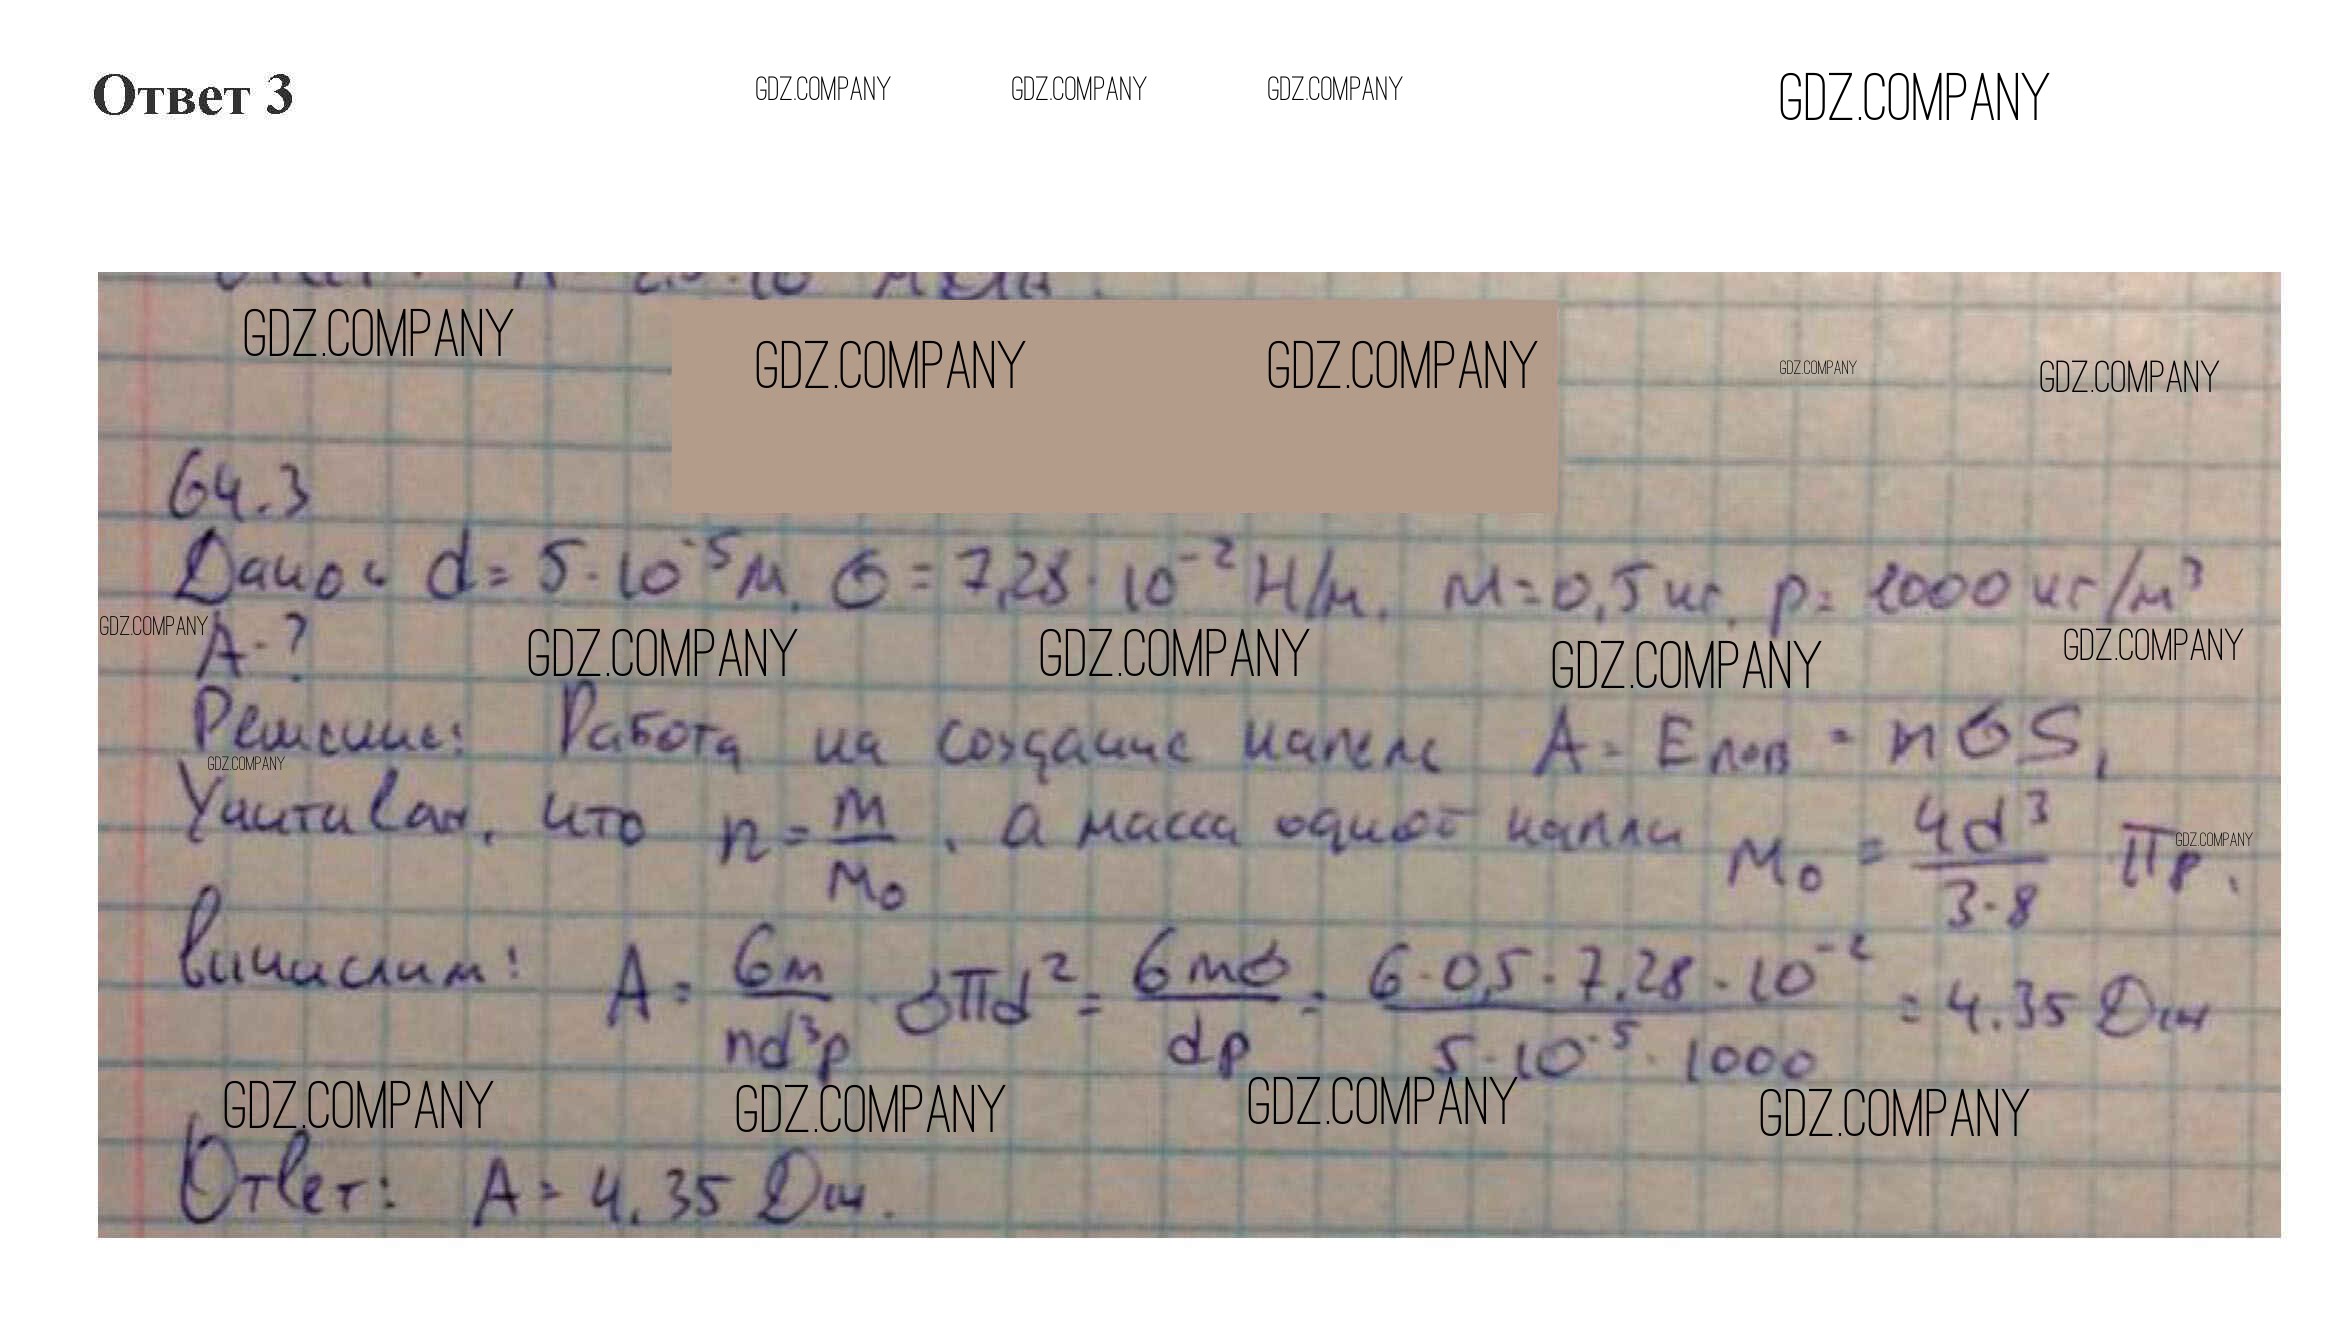 Ответ 3
GDZ.COMPANY GDZ.COMPANY GDZ.COMPANY GDZ.COMPANY
GDZ.COMPANY GDZ.COMPANY GDZ.COMPANY GDZ.COMPANY GDZ.COMPANY
64.3
Дано: d = 5·10⁻⁵ м. σ = 7,28·10⁻² Н/м. м = 0,5 кг. ρ = 1000 кг/м³
GDZ.COMPANY
А-?
GDZ.COMPANY GDZ.COMPANY GDZ.COMPANY GDZ.COMPANY
Решение: Работа на создание капель A = Eпов = nσS,
GDZ.COMPANY
Учитывая, что n = m/m₀, а масса одной капли m₀ = 4d³/3·8 πρ.
GDZ.COMPANY
Вычислим: A = 6m/πd³ρ · σπd² = 6mσ/dρ = 6·0,5·7,28·10⁻²/5·10⁻⁵·1000 = 4.35 Дж
GDZ.COMPANY GDZ.COMPANY GDZ.COMPANY GDZ.COMPANY
Ответ: A = 4.35 Дж.